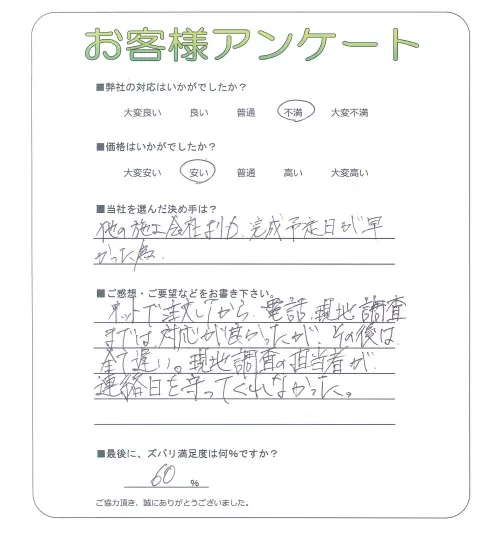 お客様アンケート
■弊社の対応はいかがでしたか？
大変良い 良い 普通 不満 大変不満
■価格はいかがでしたか？
大変安い 安い 普通 高い 大変高い
■当社を選んだ決め手は？
他の施工会社より、完成予定日が早
かった為、
■ご感想・ご要望などをお書き下さい。
ネットで注文してから、電話、現地調査
までは対応が良かったが、その後は
全て遅い。現地調査の担当者が
連絡日を守ってくれなかった。
■最後に、ズバリ満足度は何%ですか？
60 %
ご協力頂き、誠にありがとうございました。